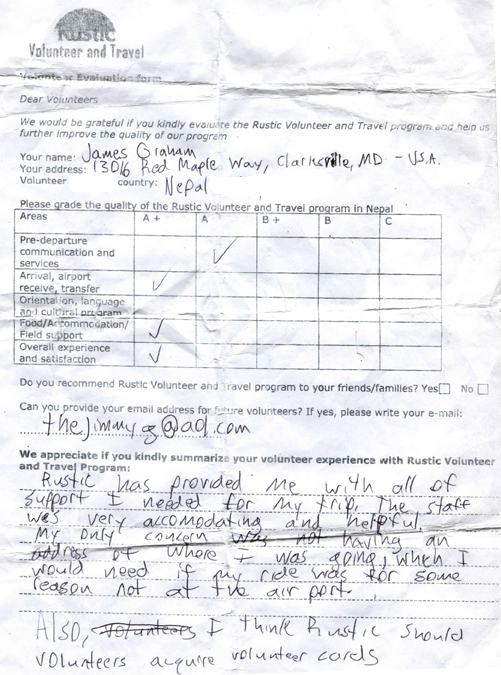 Rustic
Volunteer and Travel
Volunteer Evaluation form
Dear Volunteers
We would be grateful if you kindly evaluate the Rustic Volunteer and Travel program and help us
further improve the quality of our program
Your name: James Graham
Your address: 13016 Red Maple Way, Clarksville, MD - USA.
Volunteer country: Nepal
Please grade the quality of the Rustic Volunteer and Travel program in Nepal
Areas A + A B + B C
Pre-departure
communication and
services ✓
Arrival, airport
receive, transfer ✓
Orientation, language
and cultural program
Food/Accommodation/
Field support ✓
Overall experience
and satisfaction ✓
Do you recommend Rustic Volunteer and Travel program to your friends/families? Yes☐ No ☐
Can you provide your email address for future volunteers? If yes, please write your e-mail:
thejimmyg@aol.com
We appreciate if you kindly summarize your volunteer experience with Rustic Volunteer
and Travel Program:
Rustic has provided me with all of
support I needed for my trip. The staff
was very accomodating and helpful.
My only concern was not having an
address of where I was going, which I
would need if my ride was for some
reason not at the airport.
Also, volunteers I think Rustic should
volunteers acquire volunteer cards